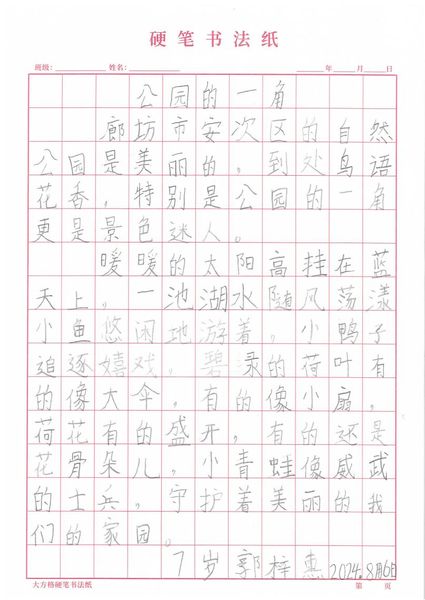 硬笔书法纸
班级: 姓名: 年 月 日
公园的一角
廊坊市安次区的自然
公园是美丽的，到处鸟语
花香，特别是公园的一角
更是景色迷人。
暖暖的太阳高挂在蓝
天上，一池湖水随风荡漾
小鱼悠闲地游着，小鸭子
追逐嬉戏。碧录的荷叶有
的像大伞，有的像小扇，
荷花有的盛开，有的还是
花骨朵儿，小青蛙像威武
的士兵，守护着美丽的我
们的家园。
7岁 郭梓惠 2024.8月6日
大方格硬笔书法纸 第 页